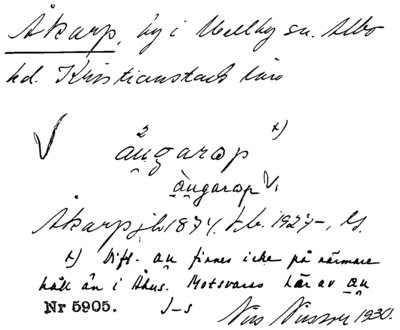 Åkarp, by i Mellby sn. Albo
hd. Kristianstads län
√ åu̯garap x)
àu̯garap V.
Åkarp jb 1874. 1927-, ls.
x) Dift. au̯ finnes icke på närmare
håll än i Åhus. Motsvaras här av au̯
Nr 5905. J-s
Nils Nilsson 1930.